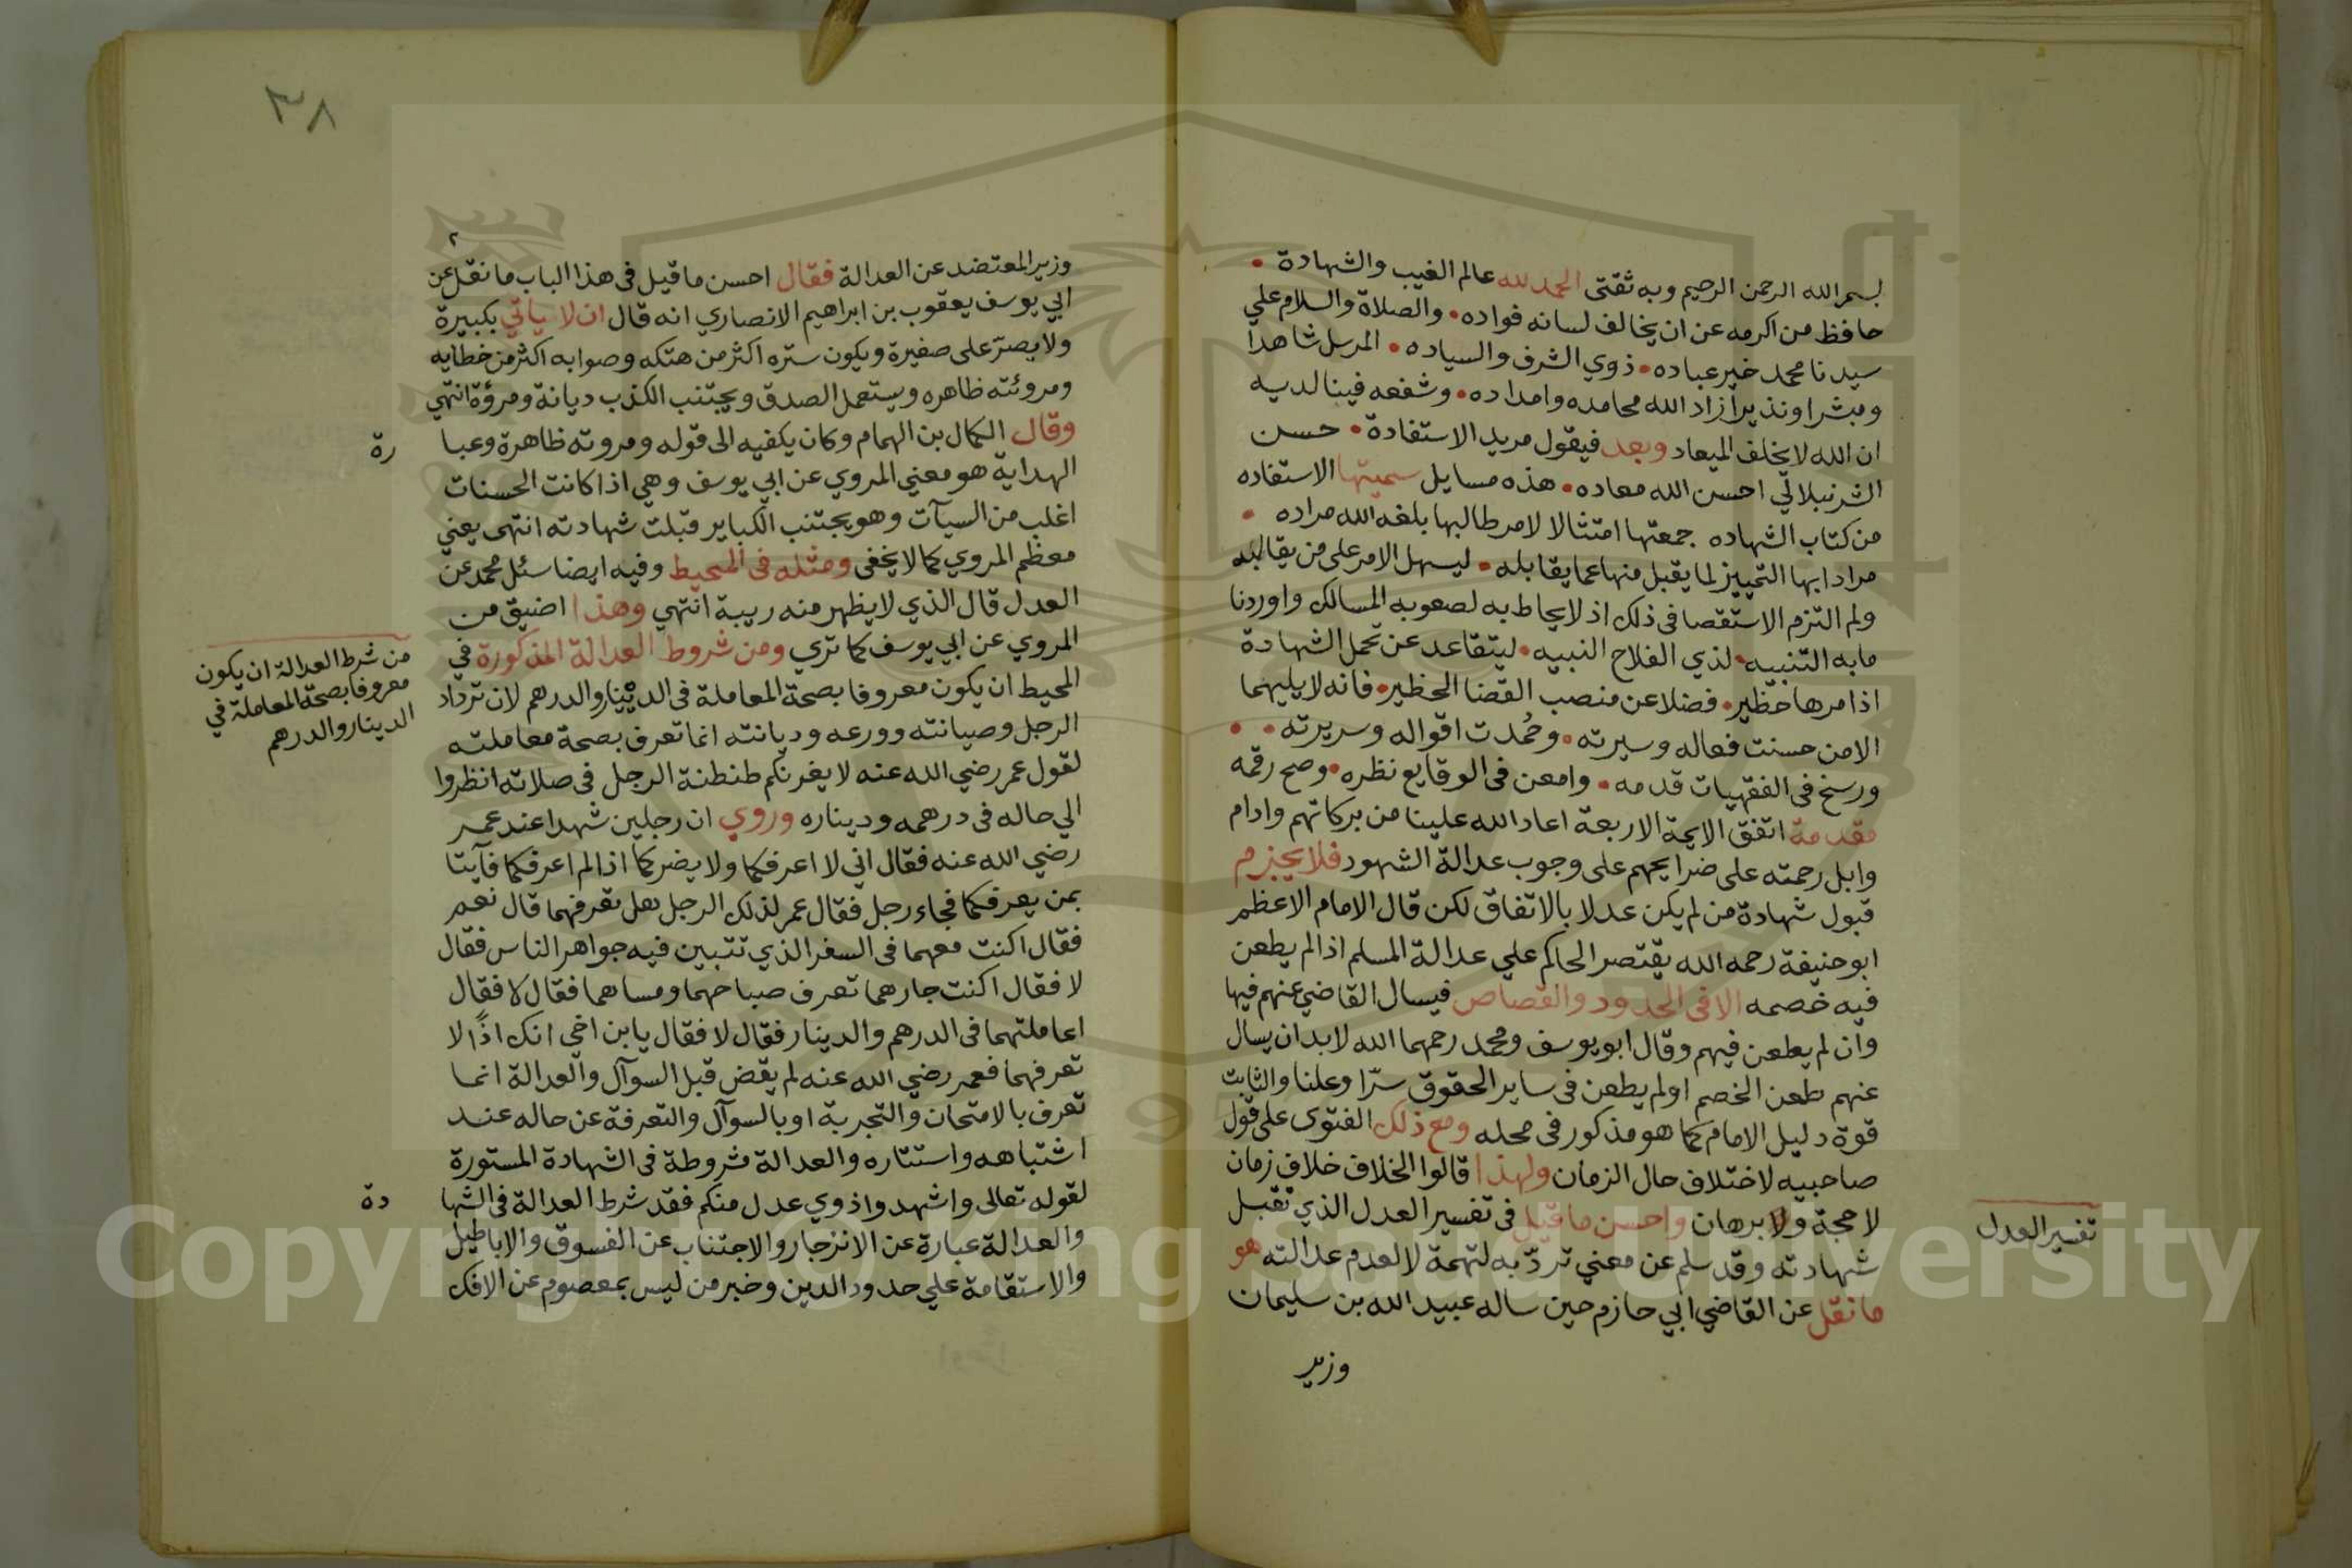 بسم الله الرحمن الرحيم وبه ثقتى الحمد لله عالم الغيب والشهادة
حافظ من اكرمه عن ان يخالف لسانه فواده والصلاة والسلام علي
سيدنا محمد خير عباده ذوي الشرف والسياده المرسل شاهدا
ومبشرا ونذيرا زاد الله محامده وامداده وشفعه فينا لديه
ان الله لا يخلف الميعاد وبعد فيقول مريد الاستفادة حسن
الشرنبلالي احسن الله معاده هذه مسايل سميتها الاستفاده
من كتاب الشهاده جمعتها امتثالا لامر طالبها بلغه الله مراده
مرادا بها التمييز لما يقبل منها عما يقابله ليسهل الامر على من يقالبه
ولم التزم الاستقصا فى ذلك اذ لا يحاط به لصعوبه المسالك واوردنا
مابه التنبيه لذي الفلاح النبيه ليتقاعد عن تحمل الشهادة
اذا مرها خطير فضلا عن منصب القضا الخطير فانه لا يليهما
الا من حسنت فعاله وسيرته وحُمدت اقواله وسريرته
ورسخ فى الفقهيات قدمه وامعن فى الوقايع نظره وصح رقمه
مقدمة اتفق الايمة الاربعة اعاد الله علينا من بركاتهم وادام
وابل رحمته على ضرايحهم على وجوب عدالة الشهود فلا يجزم
قبول شهادة من لم يكن عدلا بالاتفاق لكن قال الامام الاعظم
ابو حنيفة رحمه الله يقتصر الحاكم علي عدالة المسلم اذا لم يطعن
فيه خصمه الا فى الحدود والقصاص فيسال القاضي عنهم فيها
وان لم يطعن فيهم وقال ابو يوسف ومحمد رحمهما الله لا بد ان يسال
عنهم طعن الخصم اولم يطعن فى ساير الحقوق سرّا وعلنا والثابت
قوة دليل الامام كما هو مذكور فى محله ومع ذلك الفتوى على قول
صاحبيه لاختلاف حال الزمان ولهذا قالوا الخلاف خلاف زمان
لا حجة ولا برهان واحسن ما قيل فى تفسير العدل الذي تقبل
شهادته وقد سلم عن معني تردّ به لتهمة لا لعدم عدالته هو
ما نقل عن القاضي ابي حازم حين ساله عبيد الله بن سليمان
وزير
تفسير العدل
٣٨
وزير المعتضد عن العدالة فقال احسن ما قيل فى هذا الباب ما نقل عن
ابي يوسف يعقوب بن ابراهيم الانصاري انه قال ان لا ياتي بكبيرة
ولا يصرّ على صغيرة ويكون ستره اكثر من هتكه وصوابه اكثر من خطايه
ومروئته ظاهره ويستعمل الصدق ويجتنب الكذب ديانة ومروٴة انتهي
وقال الكمال بن الهمام وكان يكفيه الى قوله ومروته ظاهرة وعبا
رة
الهداية هو معني المروي عن ابي يوسف وهي اذا كانت الحسنات
اغلب من السيآت وهو يجتنب الكباير قبلت شهادته انتهى يعني
معظم المروي كما لا يخفى ومثله فى المحيط وفيه ايضا سئل محمد عن
العدل قال الذي لا يظهر منه ريبة انتهي وهذا اضيق من
المروي عن ابي يوسف كما تري ومن شروط العدالة المذكورة في
المحيط ان يكون معروفا بصحة المعاملة فى الدينار والدرهم لان ترداد
الرجل وصيانته وورعه وديانته انما تعرف بصحة معاملته
لقول عمر رضي الله عنه لا يغرنكم طنطنة الرجل فى صلاته انظروا
الي حاله فى درهمه وديناره وروي ان رجلين شهدا عند عمر
رضي الله عنه فقال اني لا اعرفكما ولا يضركما اذا لم اعرفكما فآيتا
بمن يعرفكما فجاء رجل فقال عمر لذلك الرجل هل تعرفهما قال نعم
فقال اكنت معهما فى السفر الذي تتبين فيه جواهر الناس فقال
لا فقال اكنت جارهما تعرف صباحهما ومساهما فقال لا فقال
اعاملتهما فى الدرهم والدينار فقال لا فقال يا بن اخي انك اذًا لا
تعرفهما فعمر رضي الله عنه لم يقض قبل السوآل والعدالة انما
تعرف بالامتحان والتجربة او بالسوآل والتعرفة عن حاله عند
اشتباهه واستتاره والعدالة مشروطة فى الشهادة المستورة
لقوله تعالى واشهدوا ذوي عدل منكم فقد شرط العدالة فى الشها
دة
والعدالة عبارة عن الانزجار والاجتناب عن الفسوق والاباطيل
والاستقامة علي حدود الدين وخبر من ليس بمعصوم عن الافك
من شرط العدالة ان يكون
معروفا بصحة المعاملة في
الدينار والدرهم
Copyright © King Saud University